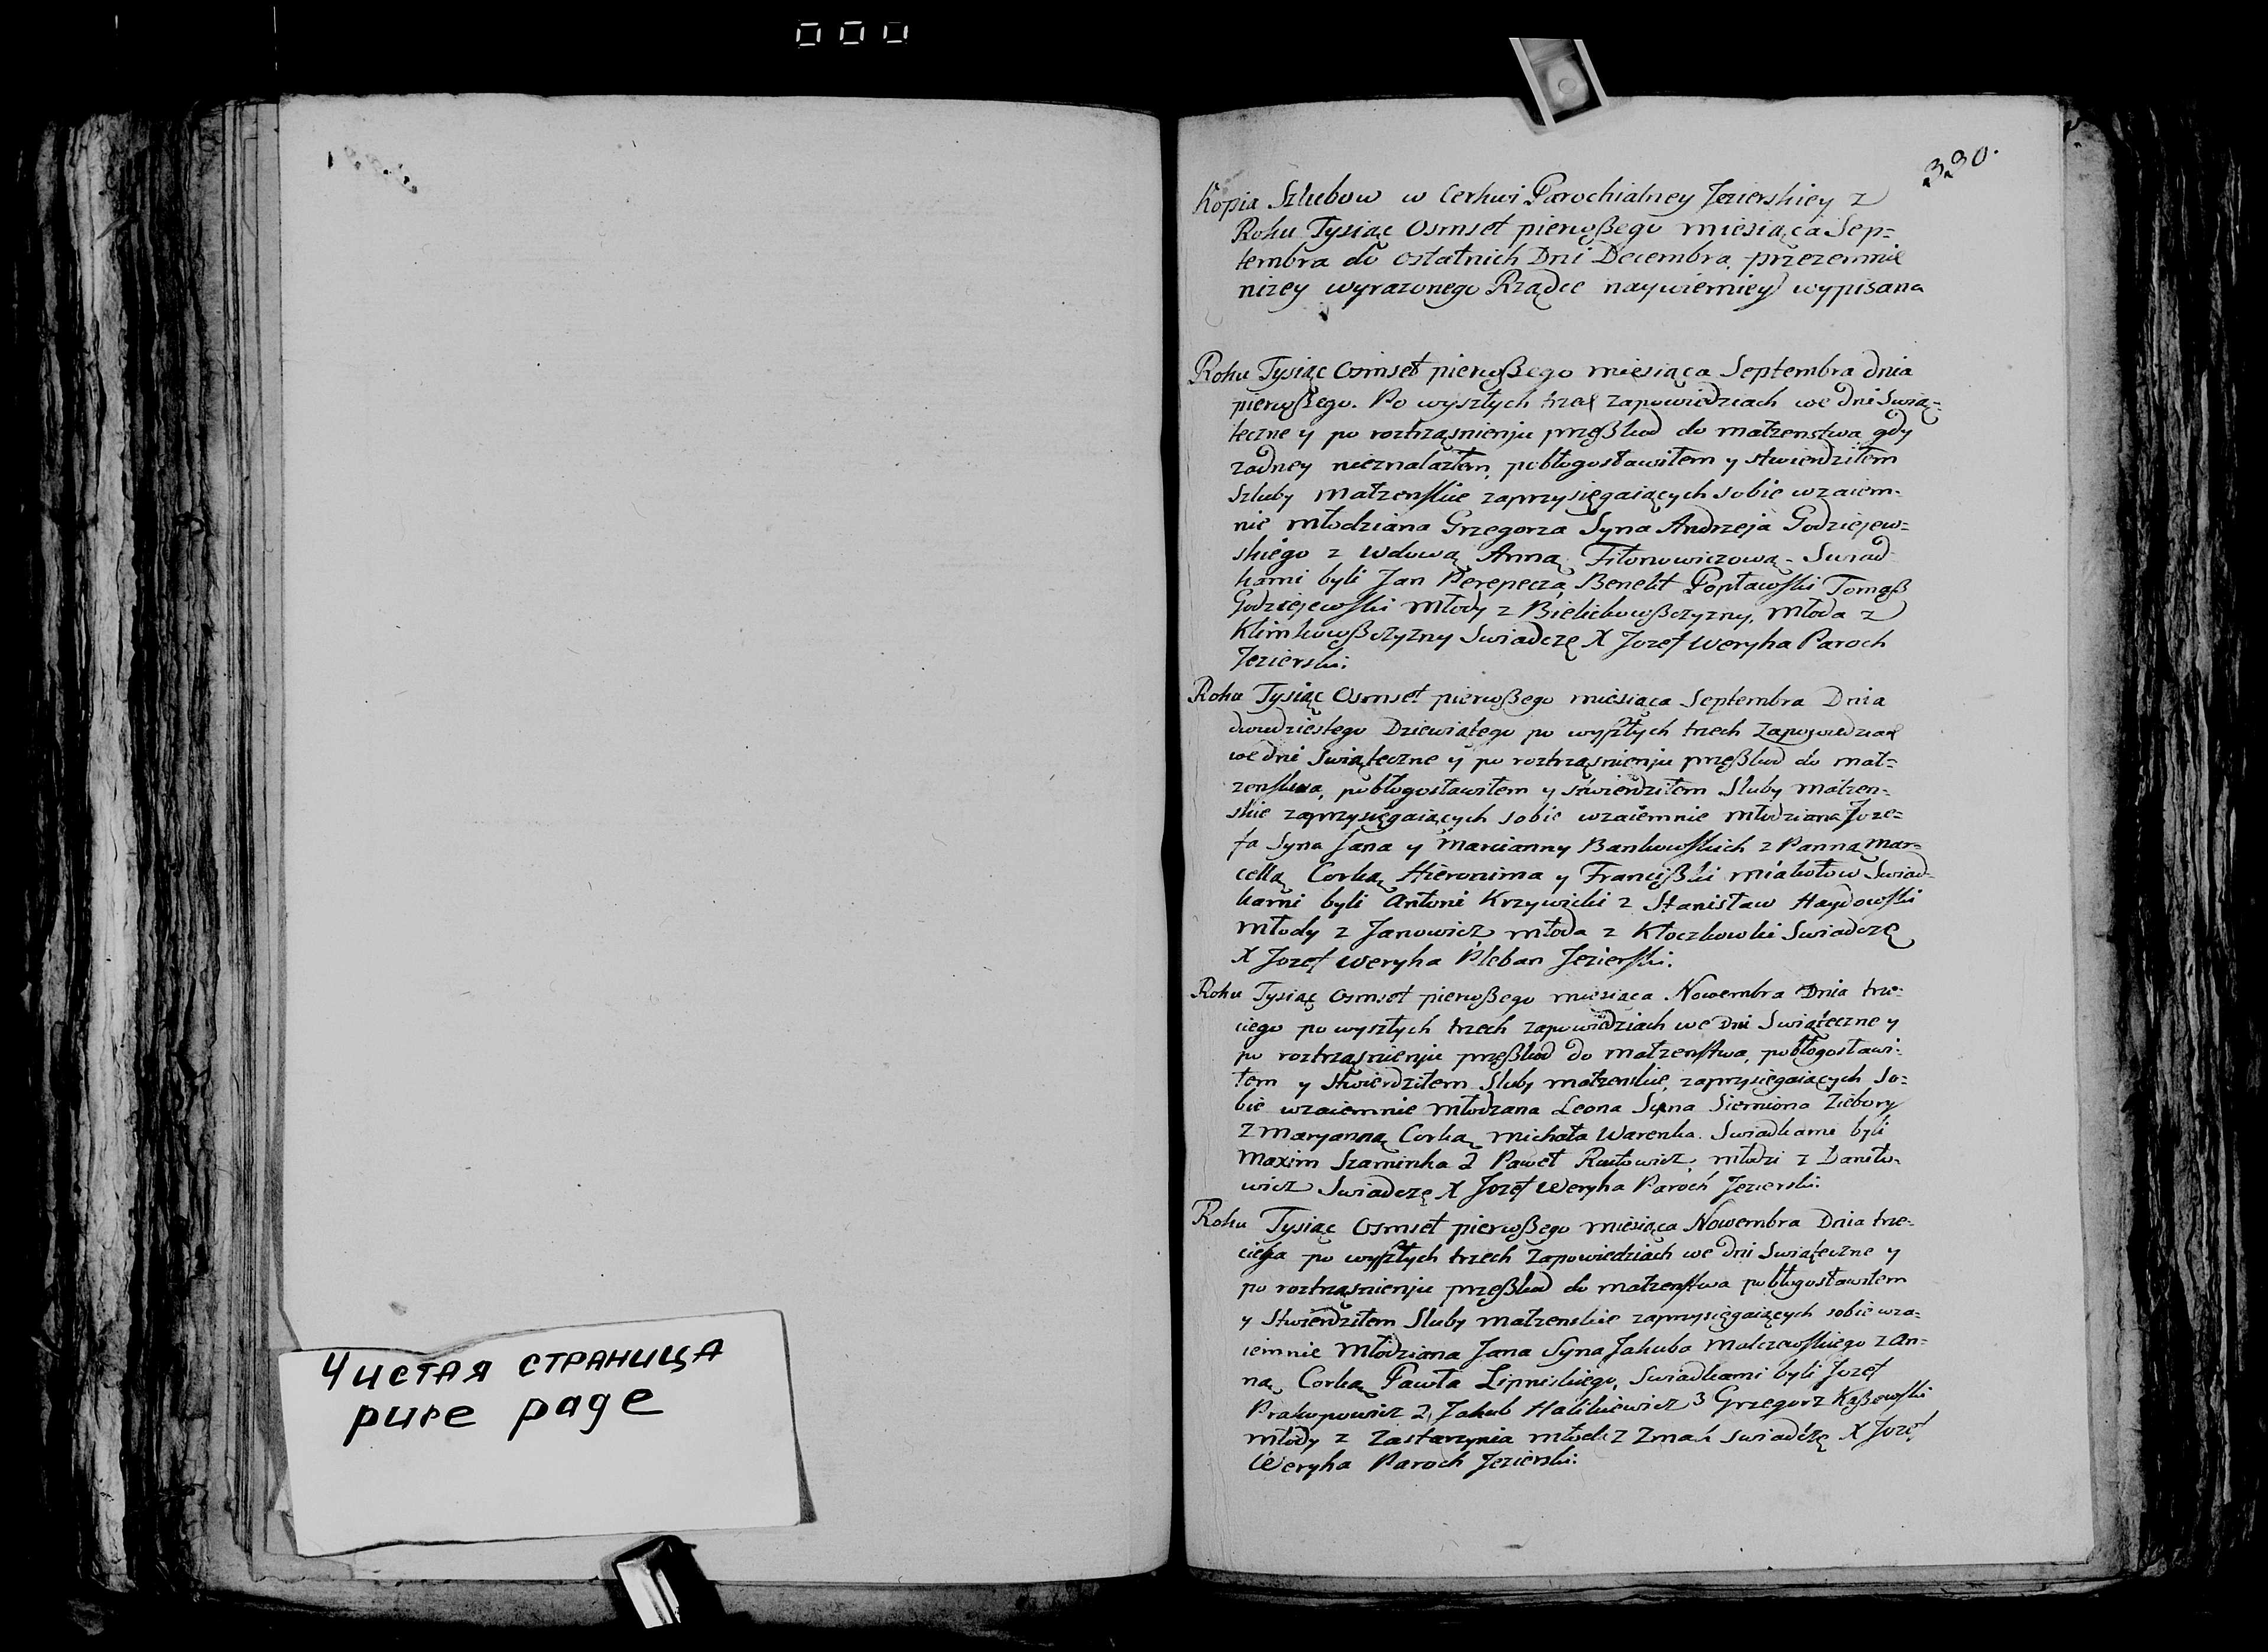 330.
Kopia Szlubow w Cerkwi Parochialney Jezierskiey z
Roku Tysiąc Osmset pierwßego miesiąca Sep=
tembra do ostatnich Dni Decembra, przezemnie
nizey wyrazonego Rządce naywierniey wypisana
Roku Tysiąc Osmset pierwßego miesiąca Septembra dnia
pierwßego. Po wyszłych trzech zapowiedziach we dni Swią=
teczne y po roztrząsnieniu przeßkod do małzenstwa gdy
zadney nieznalazłem, pobłogosławiłem y stwierdziłem
Szluby małzenskie zaprzysięgaiących sobie wzaiem=
nie młodziana Grzegorza Syna Andrzeja Godziejew=
skiego z wdową Anną Filonowiczową. Swiad
kami byli Jan Perepecza, Benekt Popławski Tomaß
Godziejewski młody z Bielickowßczyzny, młoda z
Klimkowßczyzny Swiadczę X Jozef Weryha Paroch
Jezierski.
Roku Tysiąc Osmset pierwßego miesiąca Septembra Dnia
dwudziestego Dziewiątego po wyszłych trzech Zapowiedziach
we dni Swiąteczne y po roztrząsnieniu przeßkod do mał=
zenstwa, pobłogosławiłem y stwierdziłem Sluby małzen=
skie zaprzysięgaiących sobie wzaiemnie młodziana Joze=
fa Syna Jana y Marcianny Bankowskich z Panną Mar=
cellą Corką Hieronima y Francißki Swiad=
kami byli Antoni Krzywicki 2 Stanisław Haydowski
młody z Janowicz młoda z Kłoczkowki Swiadczę
X Jozef Weryha Pleban Jezierski.
Roku Tysiąc Osmset pierwßego miesiąca Nowembra Dnia trze=
ciego po wyszłych trzech zapowiedziach we Dni Swiąteczne y
po roztrząsnieniu przeßkod do małzenstwa, pobłogosławi=
łem y stwierdziłem Sluby małzenskie, zaprzysięgaiących so=
bie wzaiemnie młodzana Leona Syna Siemiona Ziebory
z Maryanną Corką Michała Warenka. Swiadkami byli
Maxim Szaminka 2 Paweł młodzi z Daniło=
wicz Swiadczę X Jozef Weryha Paroch Jezierski.
Roku Tysiąc Osmset pierwßego miesiąca Nowembra Dnia trze=
ciego po wyszłych trzech Zapowiedziach we dni Swiąteczne y
po roztrząsnieniu przeßkod do małzenstwa pobłogosławiłem
y stwierdziłem Sluby małzenskie zaprzysięgaiących sobie wza=
iemnie młodziana Jana Syna Jakuba Malczewskiego z An=
ną Corką Pawła Lipniskiego, Swiadkami byli Jozef
Prakopowicz 2 Jakub Halikiewicz 3 Grzegorz Kaßewski
młody z Zastarzynia młoda z swiadczę X Jozef
Weryha Paroch Jezierski.
Чистая страница
pure page